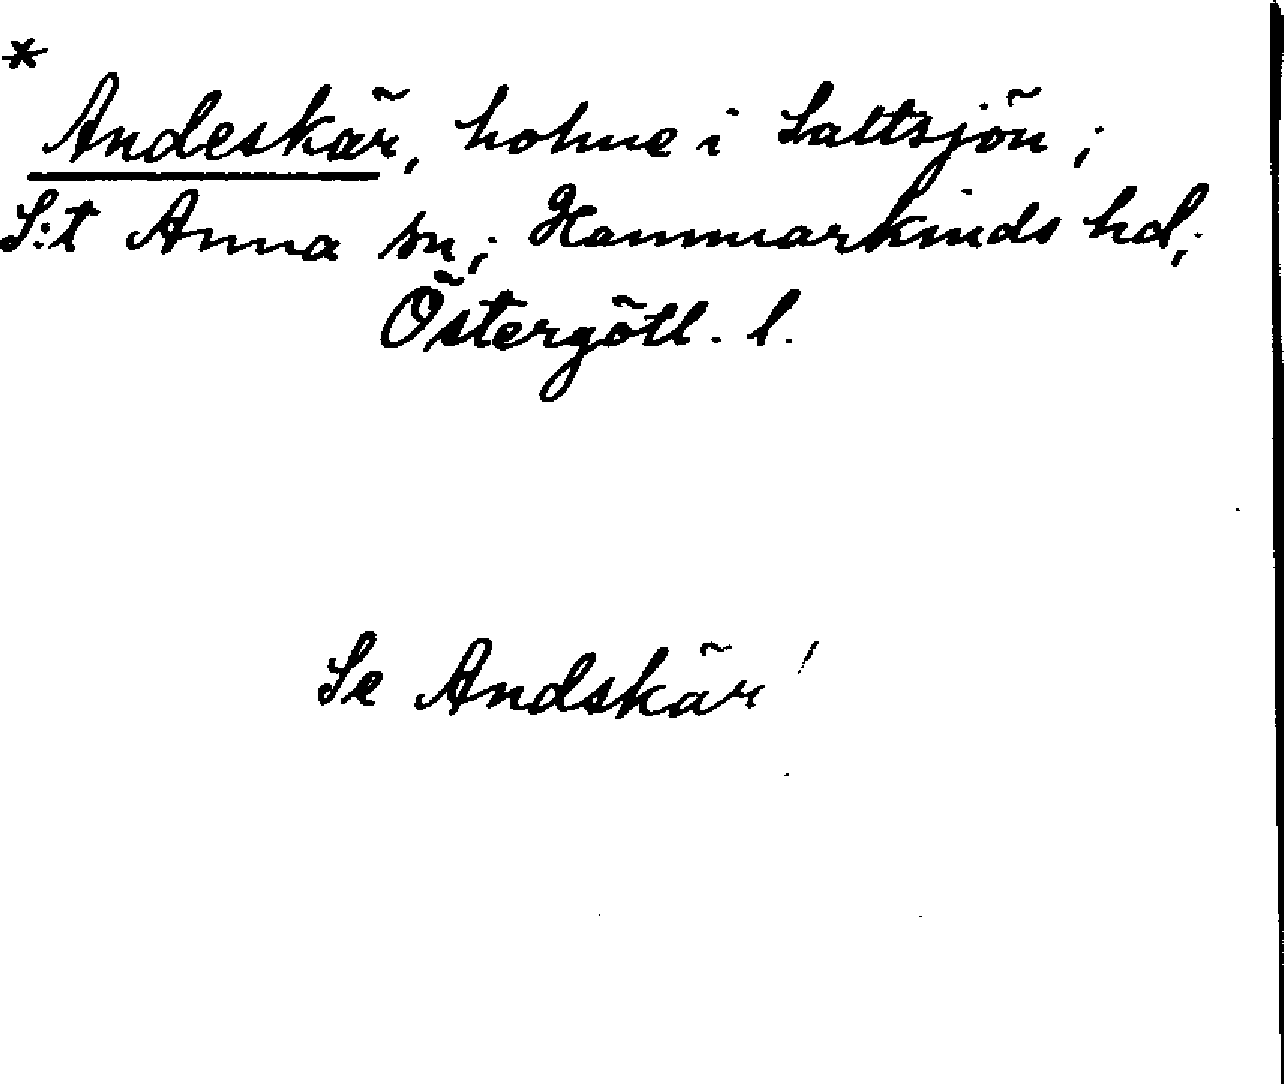 *
Andeskär, holme i Saltsjön;
S:t Anna sn; Hammarkinds hd;
Östergötl. l.
Se Andskär!